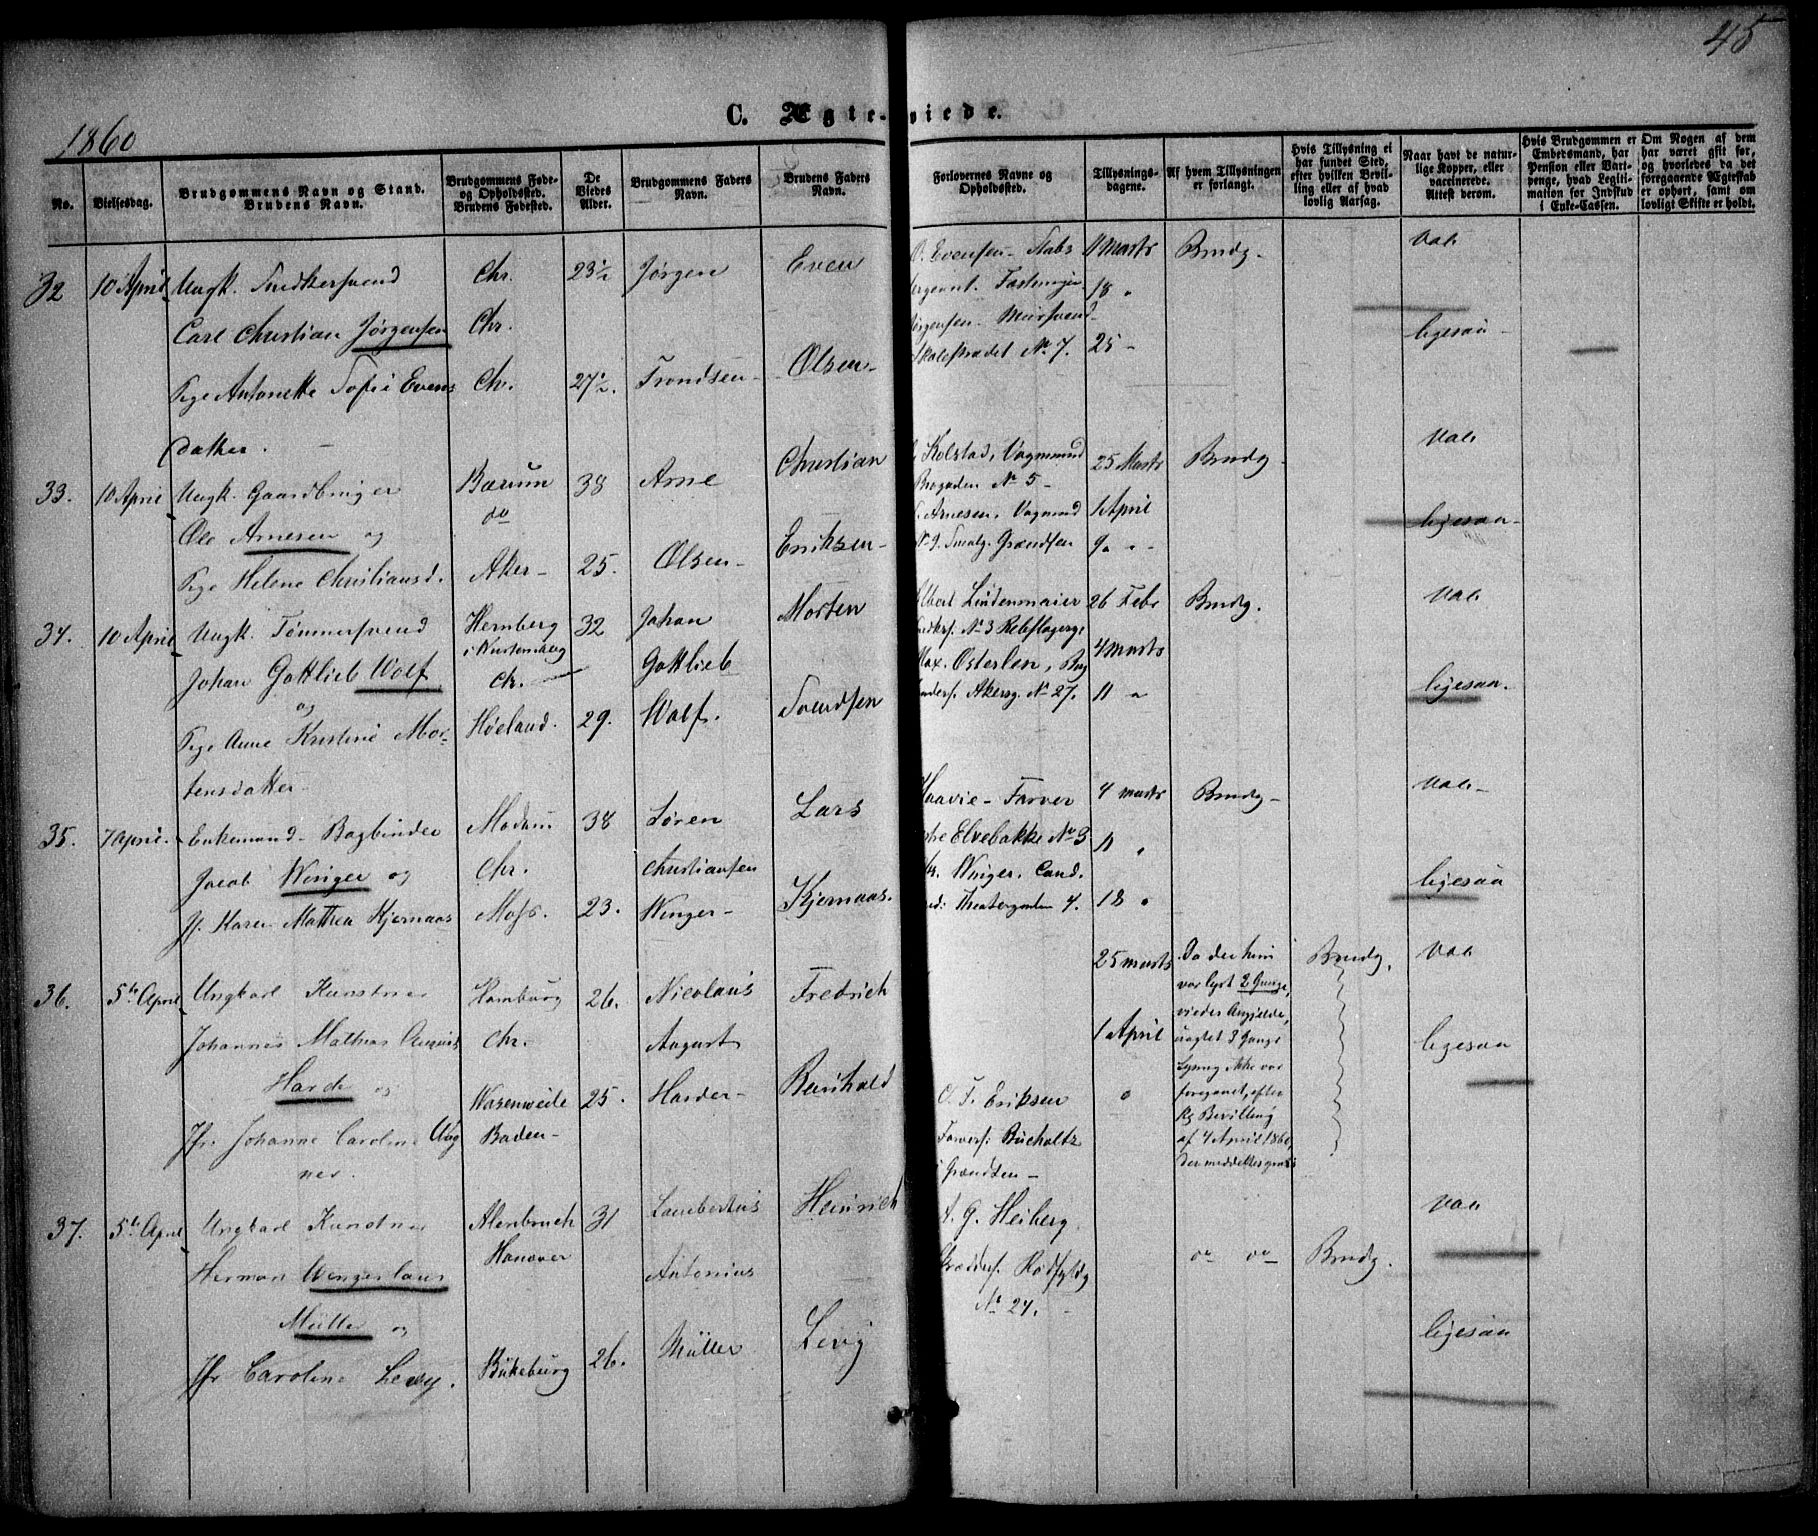 45
1860
C. Ægteviede.
No.
Vielsesdag.
Brudgommens Navn og Stand.
Brudens Navn.
Brudgommens Føde-
og Opholdssted.
Brudens Fødested.
De
Viedes
Alder.
Brudgommens Faders
Navn.
Brudens Faders
Navn.
Forlovernes Navne og
Opholdssted.
Tillysnings-
dagene.
Af hvem Tillysningen
er forlangt.
Hvis Tillysning ei
har fundet Sted,
efter hvilken Bevil-
ling eller af hvad
lovlig Aarsag.
Naar havt de natur-
lige Kopper, eller
vaccinerede.
Attest derom.
Hvis Brudgommen er
Embedsmand, har
Pension eller Vart-
penge, hvad Legiti-
mation for Indskud
i Enke-Cassen.
Om Nogen af dem
har været gift før,
og hvorledes da det
foregaaende Ægteskab
er ophørt, samt om
lovligt Skifte er holdt.
32 10 April Ungk. Snedkersvend Chr. 23½ Jørgen Even
Evensen Stabs 11 Marts Brudg. Vac.
Carl Christian Jørgensen Chr.
18 "
Jørgensen 25 - ligesaa
No. 7.
Pige Antonette Sofie Evens Chr. 27½. Trondsen Olsen
datter.
33. 10 April Ungk. Gaardbruger Bærum 38 Arne Christian
Kolstad, Vognmand 25 Marts Brudg. Vac.
No 5
Ole Arnesen og do
Arnesen, Vognmand 1 April ligesaa
No 9. Smalg. Grændsen 9. "
Pige Helene Christiansd. Aker 25. Olsen Eriksen
34. 10 April Ungk. Tømmersvend Hernberg 32 Johan Morten
Albert Lindenmaier 26 Febr Brudg. Vac.
i Würtemberg
No 3 Rebslagerg.
Johan Gottlieb Wolf Chr. Gottlieb
Max. Osterlen, 4 Marts
Akersg. No 27. 11 " ligesaa.
og
Pige Anne Kristine Mor- Høeland. 29. Wolf. Svendsen
tensdatter
35. 7 April. Enkemand Bogbinder Modum 38 Søren Lars
Haavie Farver 4 Marts Brudg. Vac.
Elvebakke No 3 11 "
Jacob Winger og Chr. Christiansen
Winger, Cand. ligesaa
J. Karen Mathea Kjernaas Moss. 23. Winger Kjernaas.
Theatergaden 4. 18 "
36. 5te April Ungkarl Kunstner Hamburg 26. Nicolaus Fredrich
25 Marts Da der kun Brudg. Vac.
var lyst 2 Gange,
Johannes Mathias August Chr. August
1 April uagtet 3 Gange ligesaa
Lysning ikke var
Harder og Wasenweile 25. Harder Reinhold
O. F. Eriksen " foregaaet, efter
Kg Bevilling
Jfr. Johanne Caroline Wag Baden
Farvers. Bucholtz af 4 April 1860,
i Grændsen der meddeltes gratis
ner.
37. 5te April Ungkarl Kunstner Alenbruch 31 Lambertus Heinrich
A. G. Heiberg Vac.
Herman Wenzeslaus Hanover Antonius
do do Brudg.
No 24.
Müller og
Jfr Caroline Levy. Bükeburg 26. Müller Levy
ligesaa